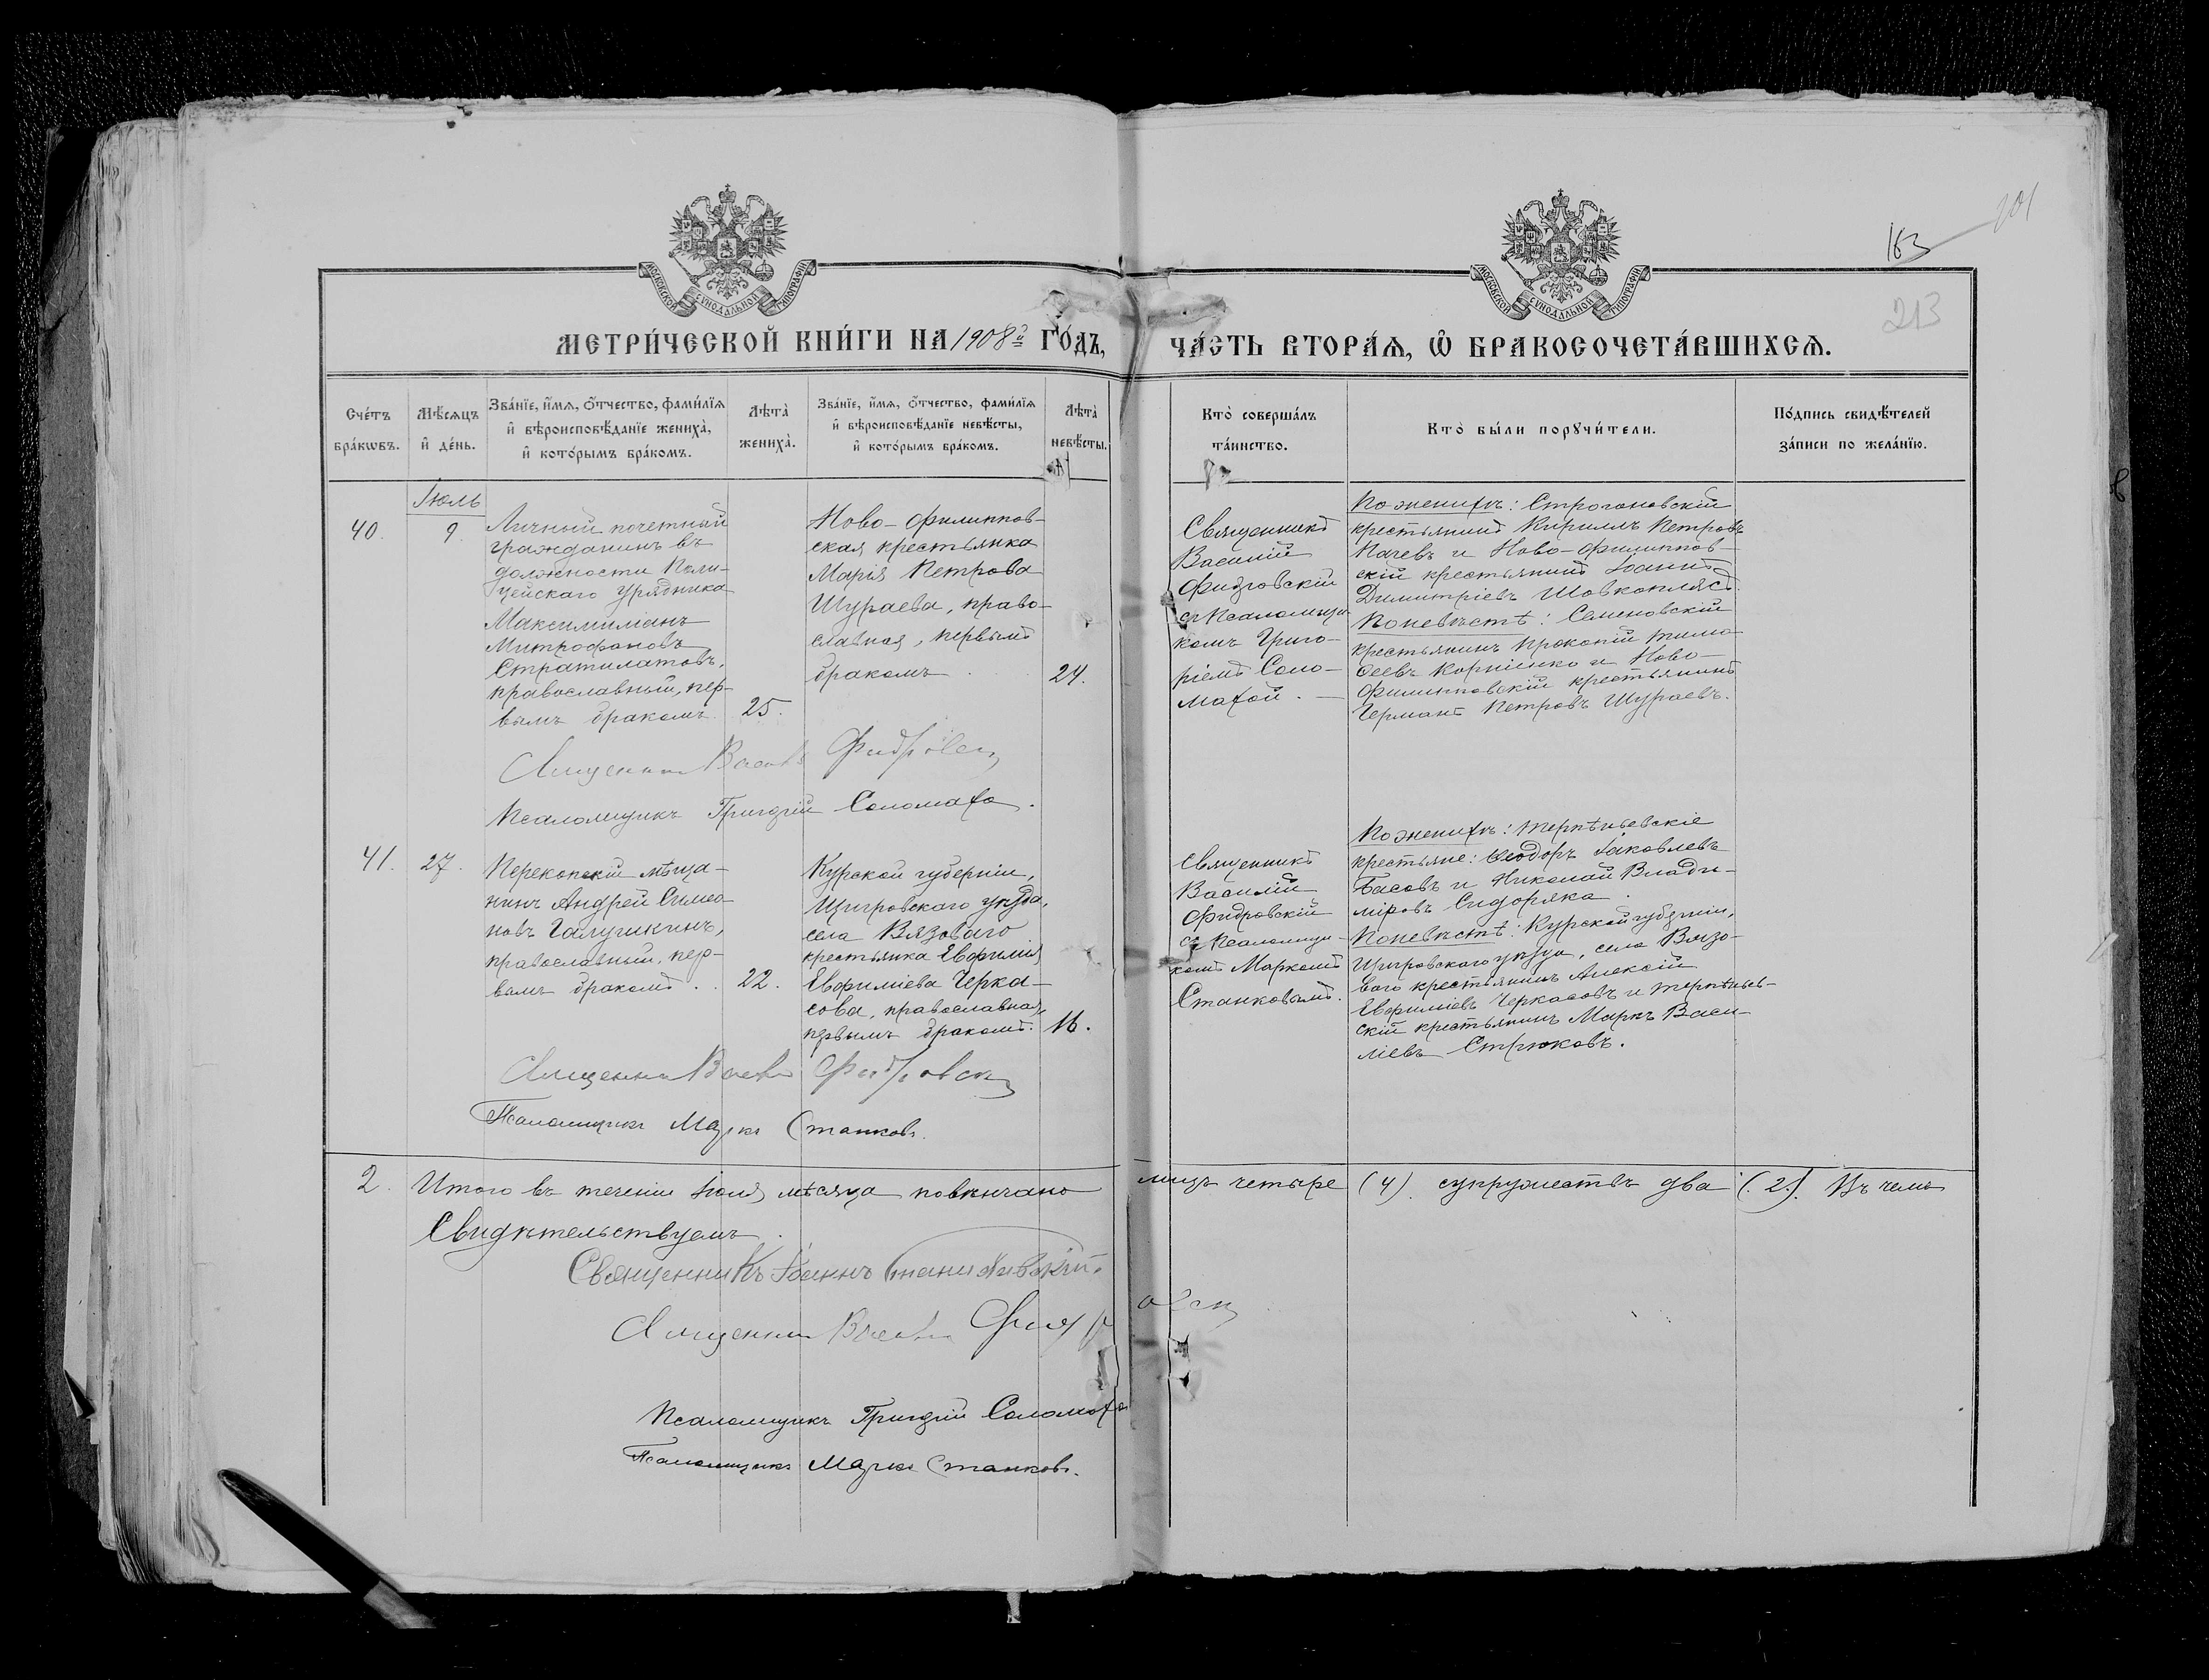 163
101
213
МОСКОВСКОЙ СѴНОДАЛЬНОЙ ТИПОГРАФІИ
МОСКОВСКОЙ СѴНОДАЛЬНОЙ ТИПОГРАФІИ
МЕТРИ́ЧЕСКОЙ КНИ́ГИ НА 1908й ГО́ДЪ,
ЧА́СТЬ ВТОРА́Ѧ, Ѽ БРАКОСОЧЕТА́ВШИХСѦ.
Сче́тъ бра́кѡвъ.
Мѣ́сяцъ и҆ де́нь.
Зва́нїе, и҆́мѧ, ѻ҆́тчество, фами́лїѧ
и҆ вѣроисповѣ́данїе жениха̀,
и҆ кото́рымъ бра́комъ.
Лѣта̀ жениха̀.
Зва́нїе, и҆́мѧ, ѻ҆́тчество, фами́лїѧ
и҆ вѣроисповѣ́данїе невѣ́сты,
и҆ кото́рымъ бра́комъ.
Лѣта̀ невѣ́сты.
Кто̀ соверша́лъ
та́инство.
Кто̀ бы́ли порꙋчи́тели.
По́дпись свидѣ́телей
за́писи по жела́нїю.
Іюль
40.
9.
Личный почетный
гражданинъ въ
должности Поли-
цейскаго урядника
Максимиліанъ
Митрофановъ
Стратилатовъ,
православный, пер-
вымъ бракомъ
25.
Ново-Филиппов-
ская крестьянка
Марія Петрова
Шураева, право-
славная, первымъ
бракомъ
24.
Священникъ
Василій
Фидровскій
съ Псаломщи-
комъ Григо-
ріемъ Соло-
махой.
По женихѣ: Строгановскій
крестьянинъ Кириллъ Петровъ
Начевъ и Ново-Филиппов-
скій крестьянинъ Іоаннъ
Димитріевъ Шовкоплясъ.
По невѣстѣ: Семеновскій
крестьянинъ Прокопій Тимо-
ѳеевъ Корніенко и Ново-
Филипповскій крестьянинъ
Германъ Петровъ Шураевъ.
Священникъ Василій Фидровскій
Псаломщикъ Григорій Соломаха.
41.
27.
Перекопскій мѣща-
нинъ Андрей Симео-
новъ Галушкинъ,
православный, пер-
вымъ бракомъ
22.
Курской губерніи,
Щигровскаго уѣзда,
села Вязоваго
крестьянка Евфимія
Евфиміева Черка-
сова, православная,
первымъ бракомъ.
16.
Священникъ
Василій
Фидровскій
съ Псаломщи-
комъ Маркомъ
Станковымъ.
По женихѣ: Терпѣньевскіе
крестьяне: Ѳеодоръ Іаковлевъ
Басовъ и Николай Влади-
міровъ Сидоряка.
По невѣстѣ: Курской губерніи,
Щигровскаго уѣзда, села Вязо-
ваго крестьянинъ Алексій
Евфиміевъ Черкасовъ и Терпѣньев-
скій крестьянинъ Маркъ Васи-
ліевъ Стрюковъ.
Священникъ Василій Фидровскій
Псаломщикъ Маркъ Станковъ.
2.
Итого въ теченіи Іюля мѣсяца повѣнчано лицъ четыре (4) супружествъ два (2). Въ чемъ
Свидѣтельствуемъ.
Священникъ Іоаннъ Станиславскій.
Священникъ Василій Фидровскій
Псаломщикъ Григорій Соломаха
Псаломщикъ Маркъ Станковъ.